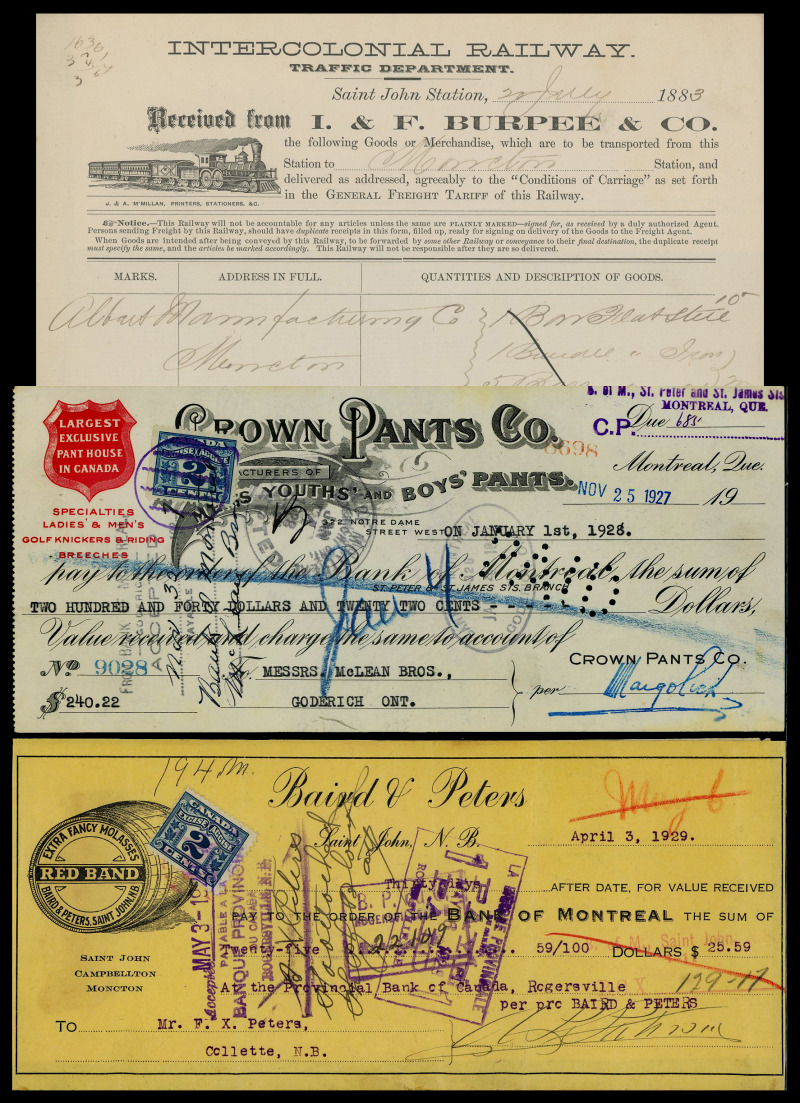 1636
3
3 67
INTERCOLONIAL RAILWAY.
TRAFFIC DEPARTMENT.
Saint John Station, 20 July 1883
Received from I. & F. BURPEE & CO.
the following Goods or Merchandise, which are to be transported from this
Station to Moncton Station, and
delivered as addressed, agreeably to the “Conditions of Carriage” as set forth
in the GENERAL FREIGHT TARIFF of this Railway.
J. & A. M'MILLAN, PRINTERS, STATIONERS, &C.
Notice.—This Railway will not be accountable for any articles unless the same are PLAINLY MARKED—signed for, as received by a duly authorized Agent.
Persons sending Freight by this Railway, should have duplicate receipts in this form, filled up, ready for signing on delivery of the Goods to the Freight Agent.
When Goods are intended after being conveyed by this Railway, to be forwarded by some other Railway or conveyance to their final destination, the duplicate receipt
must specify the same, and the articles be marked accordingly. This Railway will not be responsible after they are so delivered.
MARKS. ADDRESS IN FULL. QUANTITIES AND DESCRIPTION OF GOODS.
Albert Manufacturing Co 1 Bar Flat Steel 10
Moncton 1 Bundle " Iron
B. of M., St. Peter and St. James Sts
MONTREAL, QUE.
C.P. Due 685
LARGEST
EXCLUSIVE
PANT HOUSE
IN CANADA
SPECIALTIES
LADIES' & MEN'S
GOLF KNICKERS & RIDING
BREECHES
CROWN PANTS CO.
6698
MANUFACTURERS OF
MEN'S YOUTHS' AND BOYS' PANTS.
CANADA
EXCISE ACCISE
2
CENTS
322 NOTRE DAME
STREET WEST
Montreal, Que.
NOV 25 1927 19
ON JANUARY 1st, 1928.
pay to the order of the Bank of Montreal, the sum of
ST. PETER & ST. JAMES STS. BRANCH
TWO HUNDRED AND FORTY DOLLARS AND TWENTY TWO CENTS Dollars,
Jan 4
Value received and charge the same to account of
Nº 9028
To. MESSRS. McLEAN BROS.,
CROWN PANTS CO.
$ 240.22
GODERICH ONT.
per
ACCEPTED
PAYABLE
194 m.
Baird & Peters
May 6
Saint John, N. B.
April 3, 1929.
CANADA
EXCISE ACCISE
2
CENTS
EXTRA FANCY MOLASSES
RED BAND
BAIRD & PETERS, SAINT JOHN, N.B.
Thirty days AFTER DATE, FOR VALUE RECEIVED
PAY TO THE ORDER OF THE BANK OF MONTREAL THE SUM OF
Twenty-five 59/100 DOLLARS $ 25.59
SAINT JOHN
CAMPBELLTON
MONCTON
At the Provincial Bank of Canada, Rogersville
129-17
per pro BAIRD & PETERS
TO Mr. F. X. Peters,
Collette, N.B.
Accepted MAY 3-19
PAYABLE A LA
BANQUE PROVINCIALE
DU CANADA
ROGERSVILLE N.B.
22109